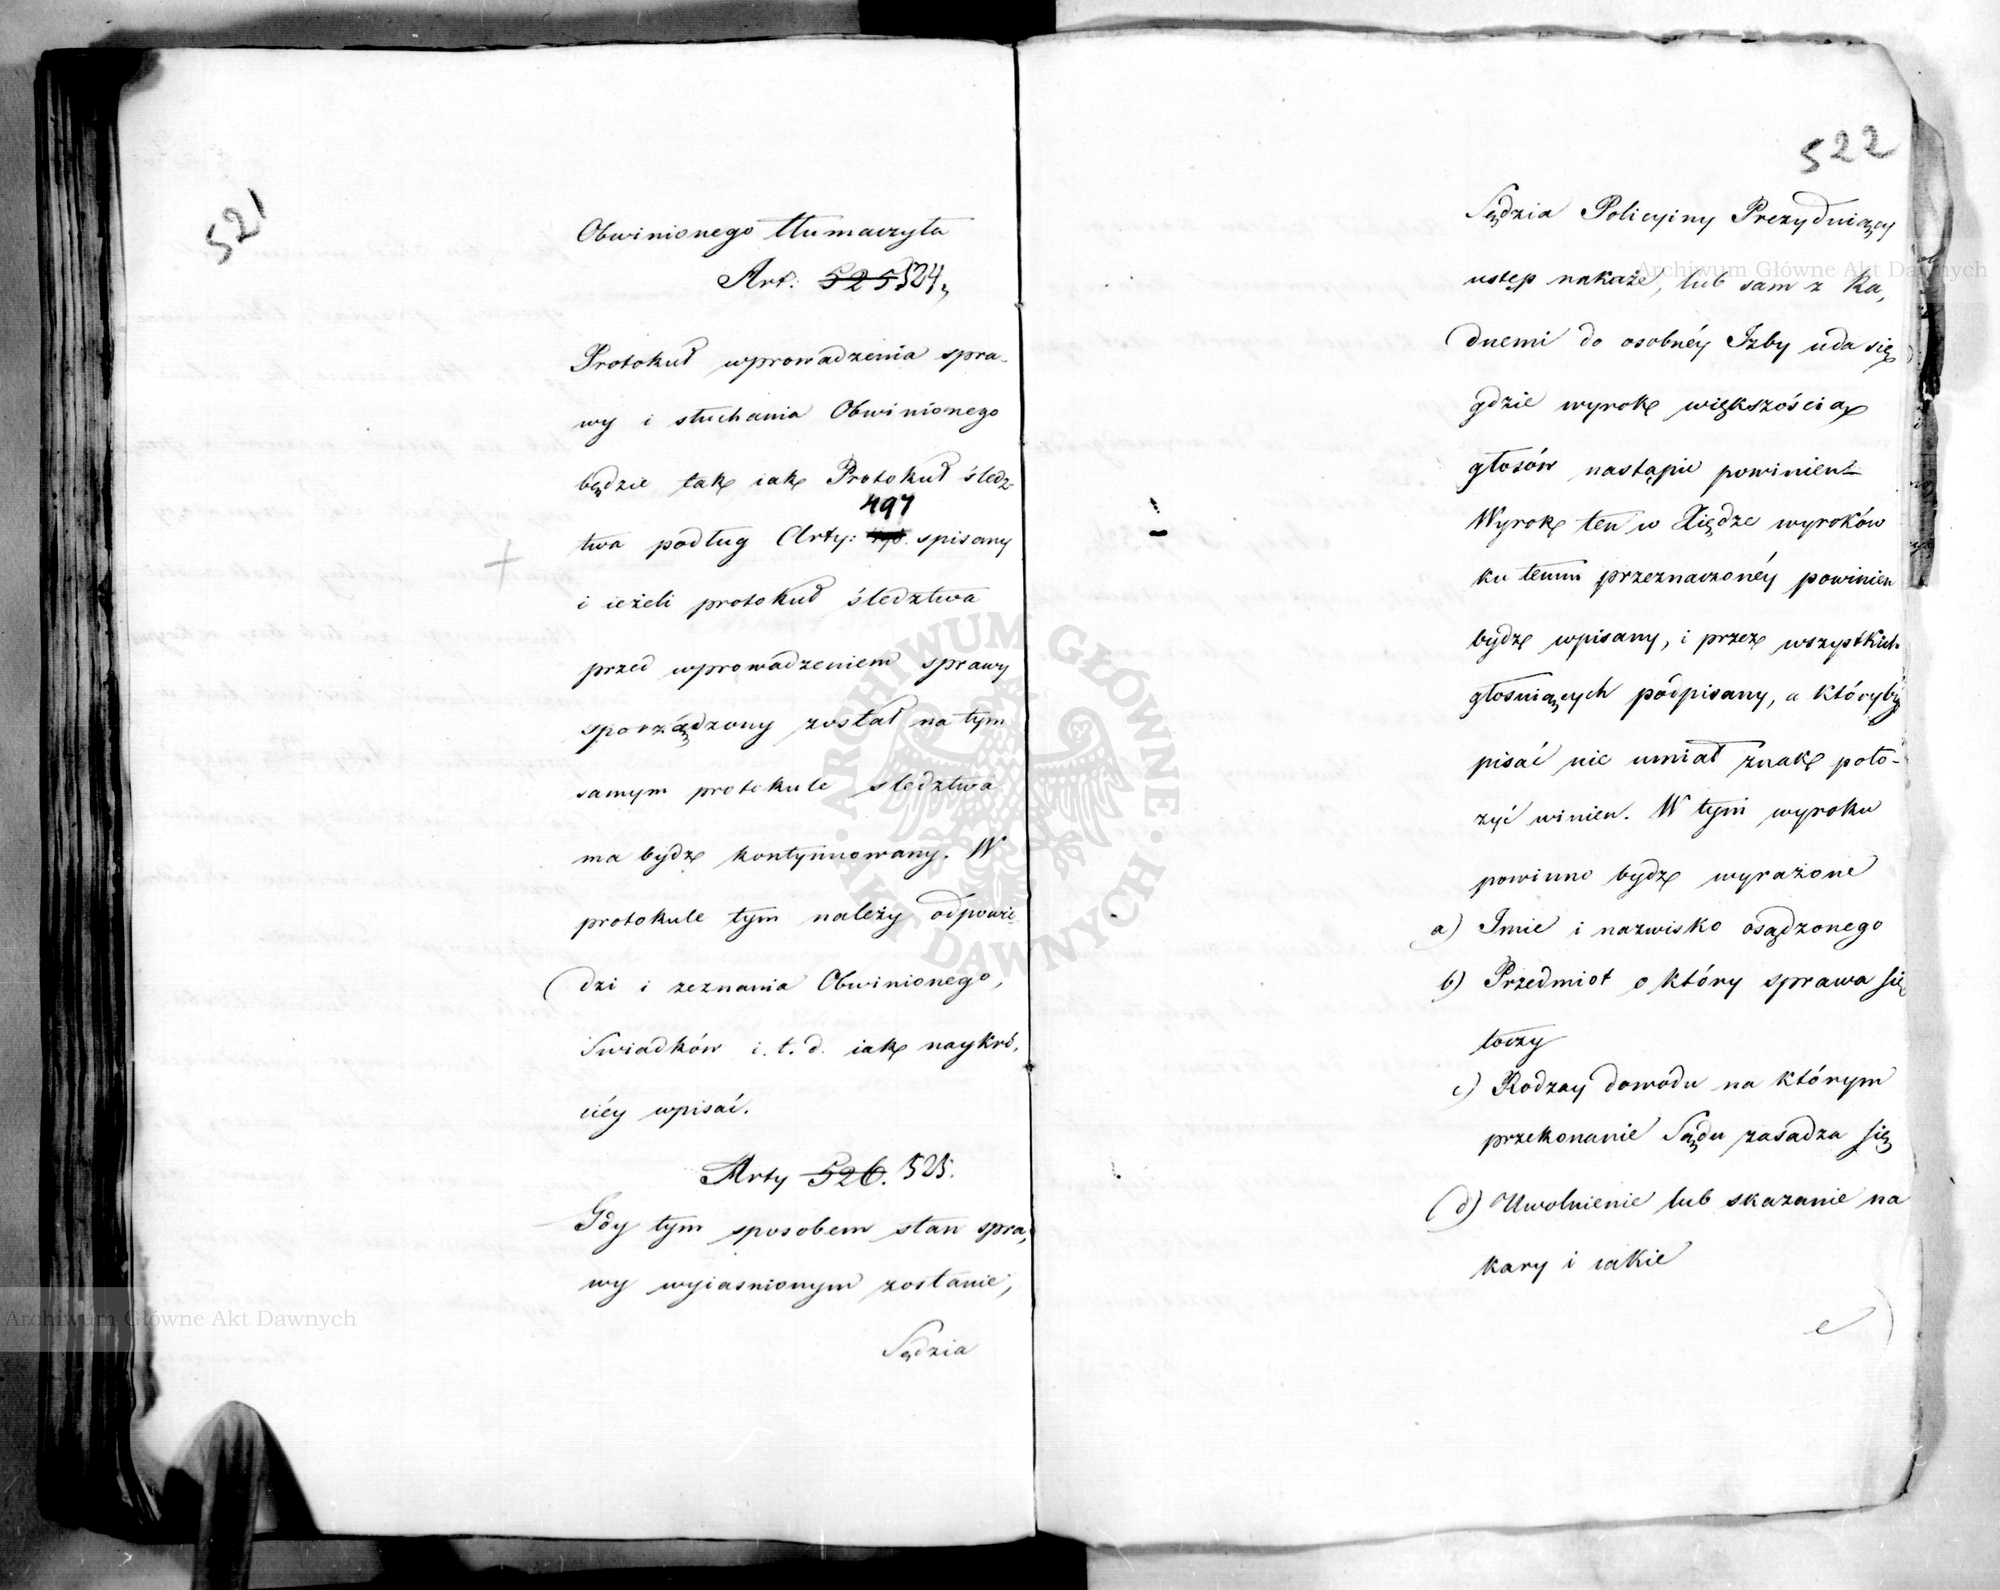 521
Obwinionego tłumaczyła
Art: 525 524,
Protokuł wprowadzenia spra-
wy i słuchania Obwinionego
będzie tak iak Protokuł śledz-
twa podług Arty: 497 spisany
i ieżeli protokuł śledztwa
przed wprowadzeniem sprawy
sporządzony został na tym
samym protokule śledztwa
ma bydz kontynuowany. W
protokule tym należy odpowie
dzi i zeznania Obwinionego,
Swiadków i. t. d. iak naykró,
ciéy wpisać.
Arty 526. 525.
Gdy tym sposobem stan spra,
wy wyiasnionym zostanie,
Sędzia
522
Sędzia Policyiny Prezyduiący
ustęp nakaże, lub sam z Ra,
dnemi do osobnéy Izby uda się
gdzie wyrok większością
głosów nastąpić powinien
Wyrok ten w Xiędze wyroków
ku temu przeznaczonéy powinien
bydz wpisany, i przez wszystkich
głosuiących podpisany, a któryby
pisać nie umiał znak poło-
żyć winien. W tym wyroku
powinno bydz wyrażone
a) Imie i nazwisko osądzonego
b) Przedmiot o który sprawa się
toczy
c) Rodzay dowodu na którym
przekonanie Sądu zasadza się
d) Uwolnienie lub skazanie na
kary i iakie
e)
ARCHIWUM GŁÓWNE AKT DAWNYCH
Archiwum Główne Akt Dawnych
Archiwum Główne Akt Dawnych